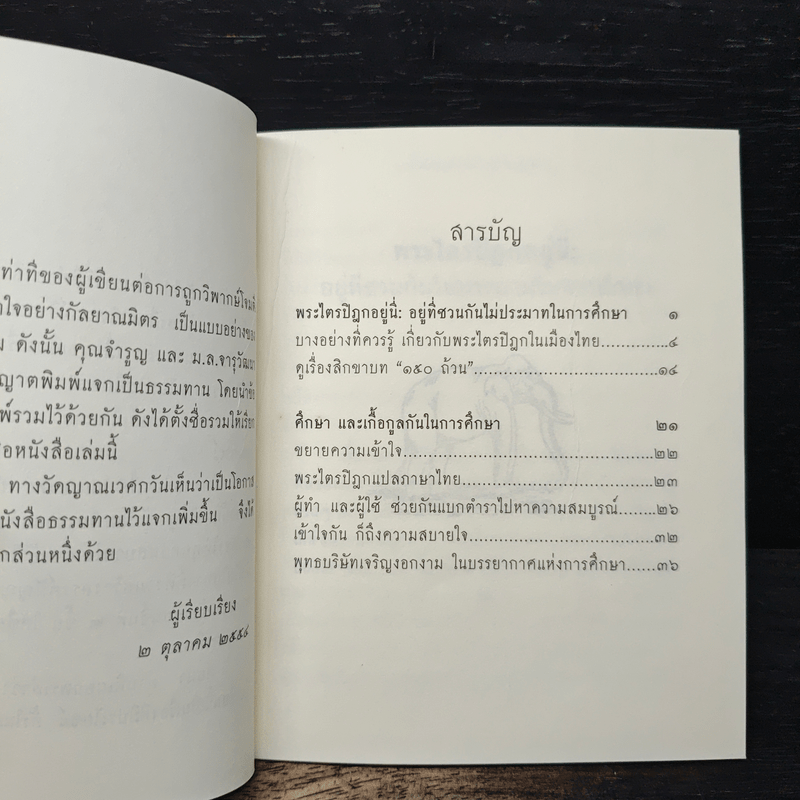 ท่าทีของผู้เขียนต่อการถูกวิพากษ์โจมตี
ใจอย่างกัลยาณมิตร เป็นแบบอย่างของ
ดังนั้น คุณจำรูญ และ ม.ล.จารุวัฒนา
ญาตพิมพ์แจกเป็นธรรมทาน โดยนำข้อ
พ์รวมไว้ด้วยกัน ดังได้ตั้งชื่อรวมให้เรียก
อหนังสือเล่มนี้
ทางวัดญาณเวศกวันเห็นว่าเป็นโอกาส
นังสือธรรมทานไว้แจกเพิ่มขึ้น จึงได้
กส่วนหนึ่งด้วย
ผู้เรียบเรียง
๒ ตุลาคม
สารบัญ
พระไตรปิฎกอยู่นี่: อยู่ที่ชวนกันไม่ประมาทในการศึกษา ๑
บางอย่างที่ควรรู้ เกี่ยวกับพระไตรปิฎกในเมืองไทย..................๔
ดูเรื่องสิกขาบท “๑๕๐ ถ้วน”.......................................๑๔
ศึกษา และเกื้อกูลกันในการศึกษา ๒๑
ขยายความเข้าใจ.......................................................๒๒
พระไตรปิฎกแปลภาษาไทย..........................................๒๓
ผู้ทำ และผู้ใช้ ช่วยกันแบกตำราไปหาความสมบูรณ์........๒๖
เข้าใจกัน ก็ถึงความสบายใจ..........................................๓๒
พุทธบริษัทเจริญงอกงาม ในบรรยากาศแห่งการศึกษา......๓๖